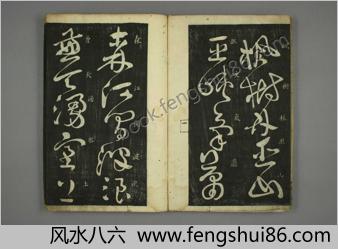 楓樹林巫山
巫峽氣蕭
森江間波浪
兼天湧塞上
book.fengshui86.com
风水八六 www.fengshui86.com